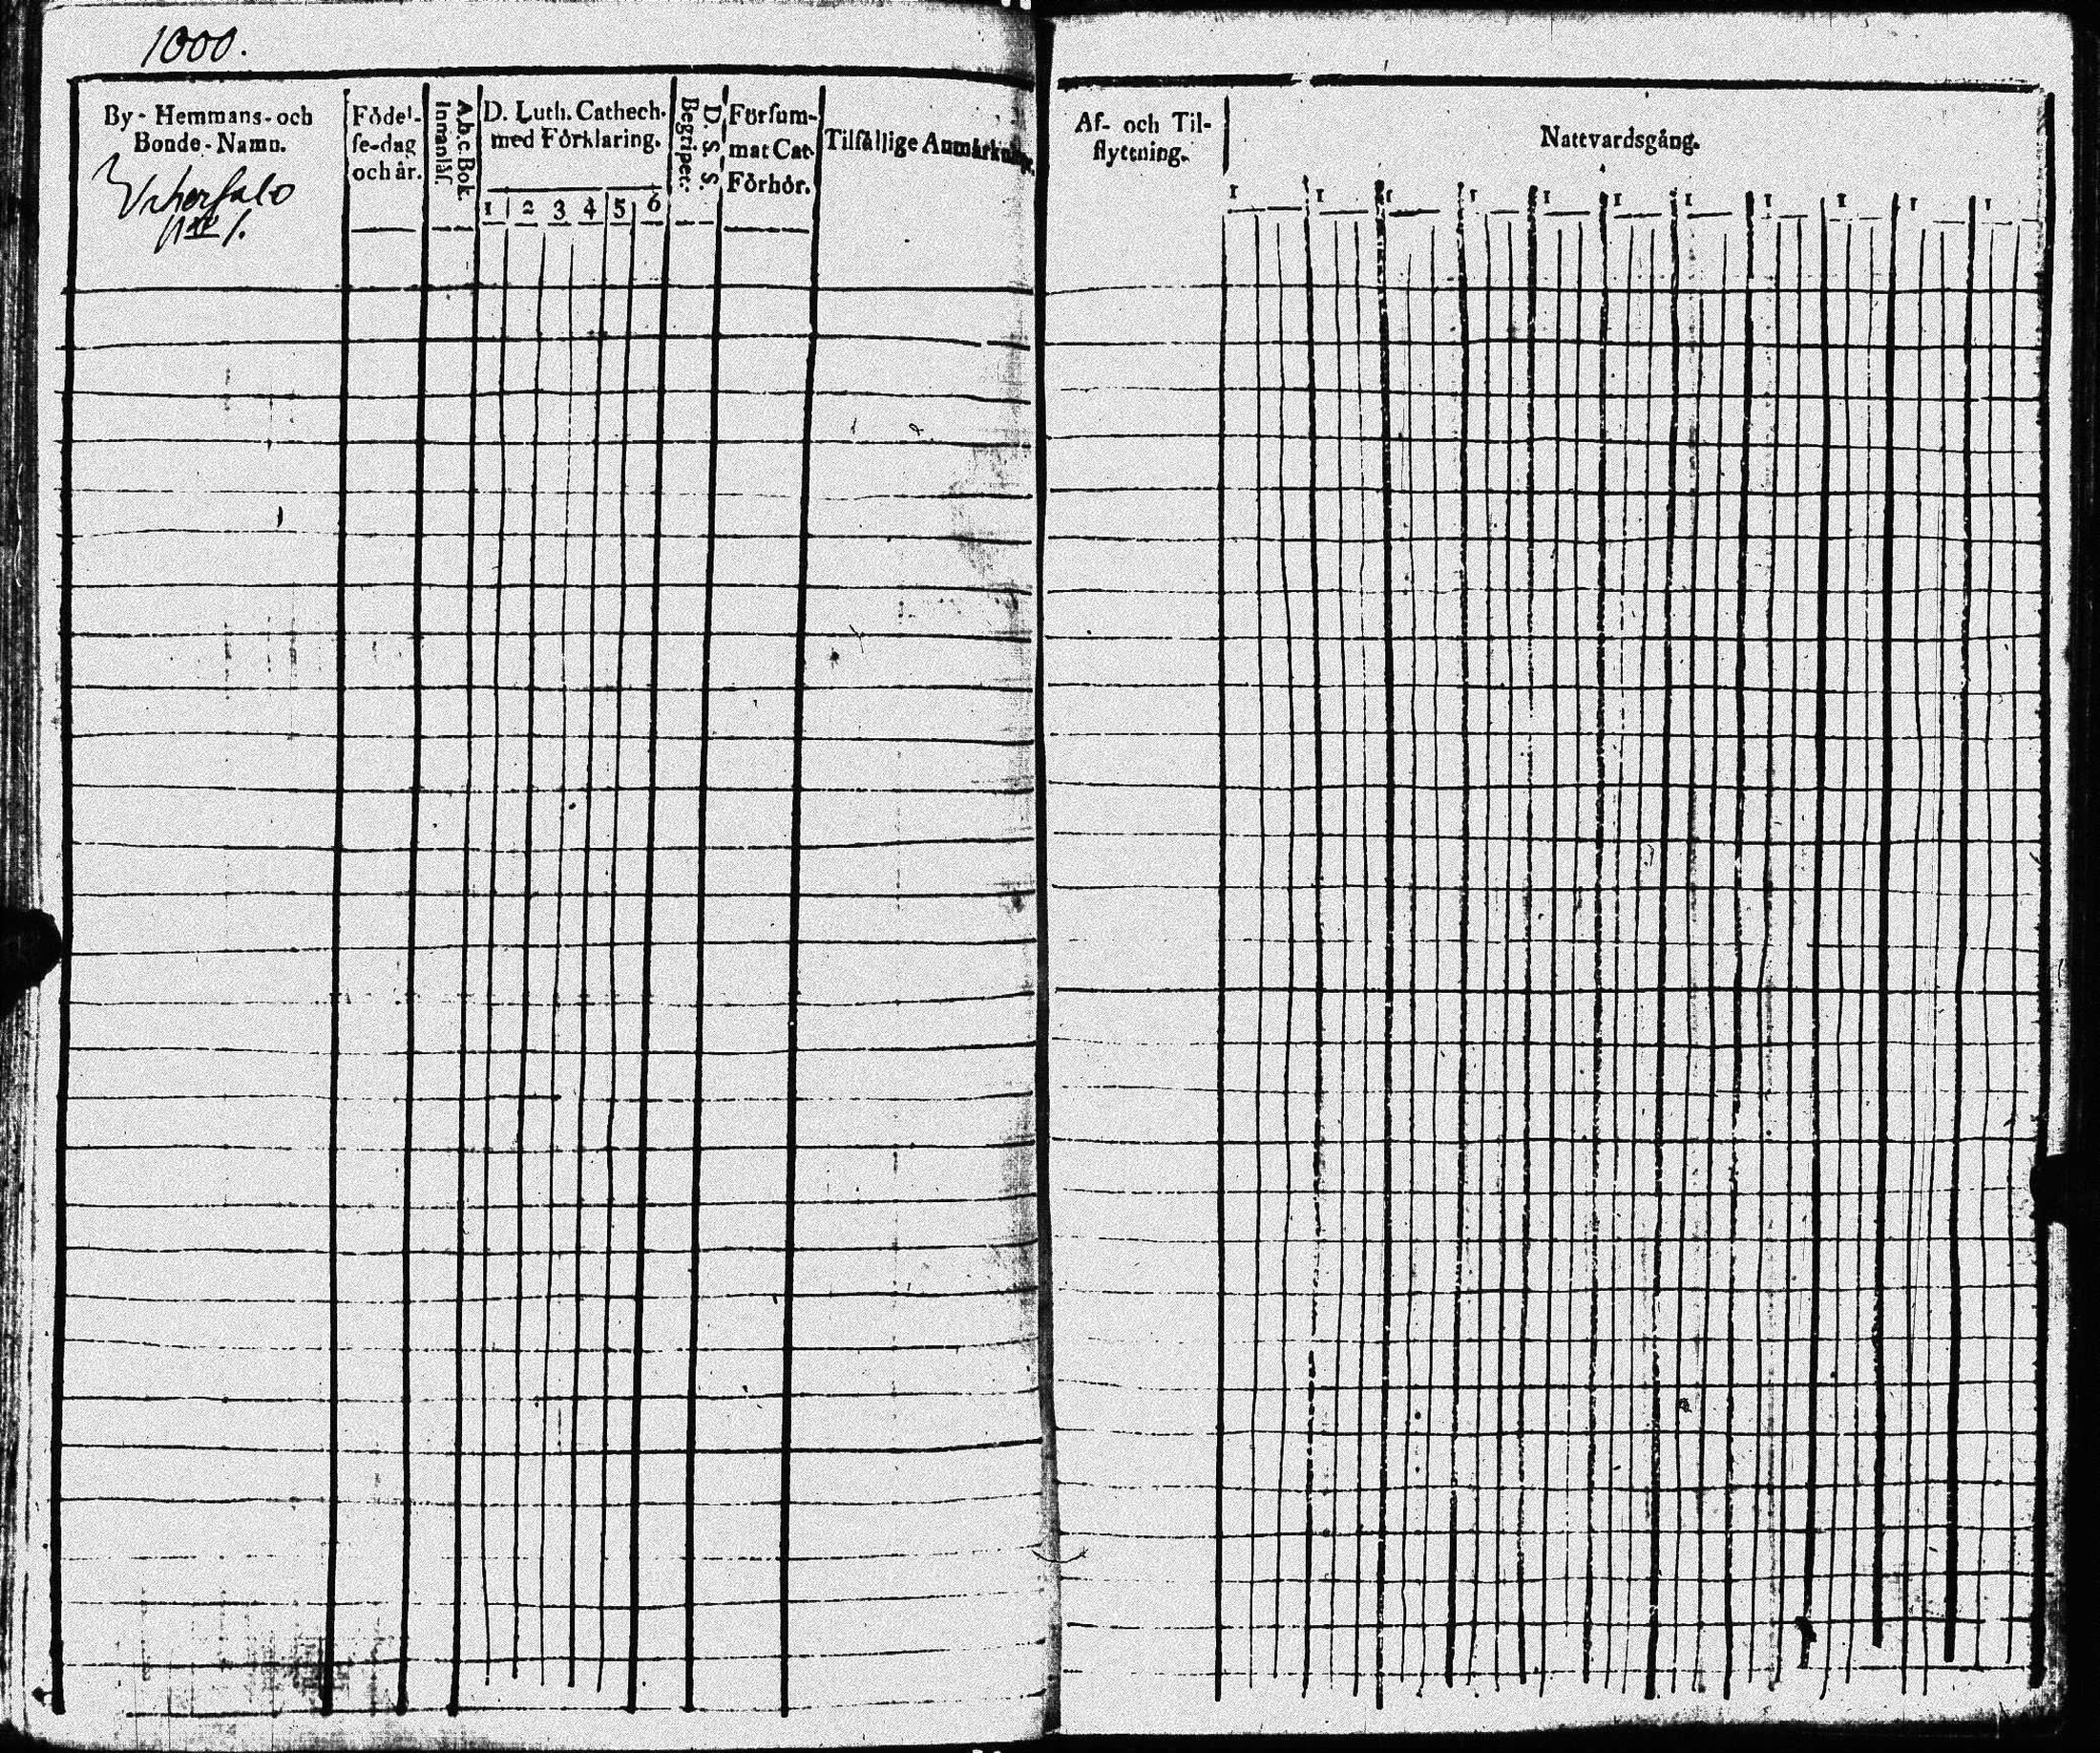 1000.
By- Hemmans- och
Bonde-Namn.
No 1.
Födel-
se-dag
och år.
A.b.c Bok.
Innanläs.
D. Luth. Cathech.
med Förklaring.
1 2 3 4 5 6
D. S. S.
Begriper.
Försum-
mat Cat.
Förhör.
Tilfällige Anmärkning.
Af- och Til-
flyttning.
Nattvardsgång.
1 1 1 1 1 1 1 1 1 1 1